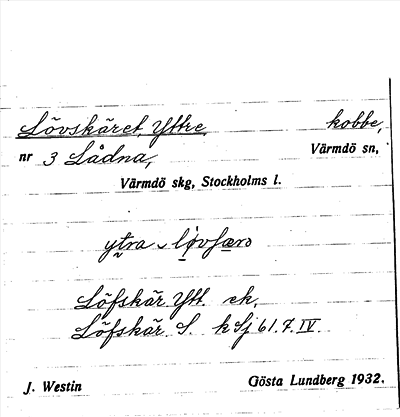 Lövskäret, Yttre, kobbe,
nr 3 Lådna, Värmdö sn,
Värmdö skg, Stockholms l.
ytra - løvʃærə
Löfskär Ytt. ek,
Löfskär. S. k Sj 61.7.IV.
J. Westin Gösta Lundberg 1932.